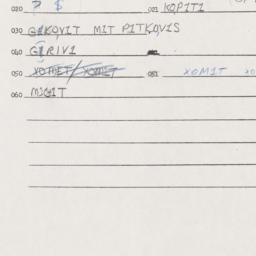 020 ? $ 021 KOPITI
030 GEKOVIT MIT PITKOVIS
040 GIRIVI
050 XOMET/XOMET 051 XOMIT XO
060 MIGIT